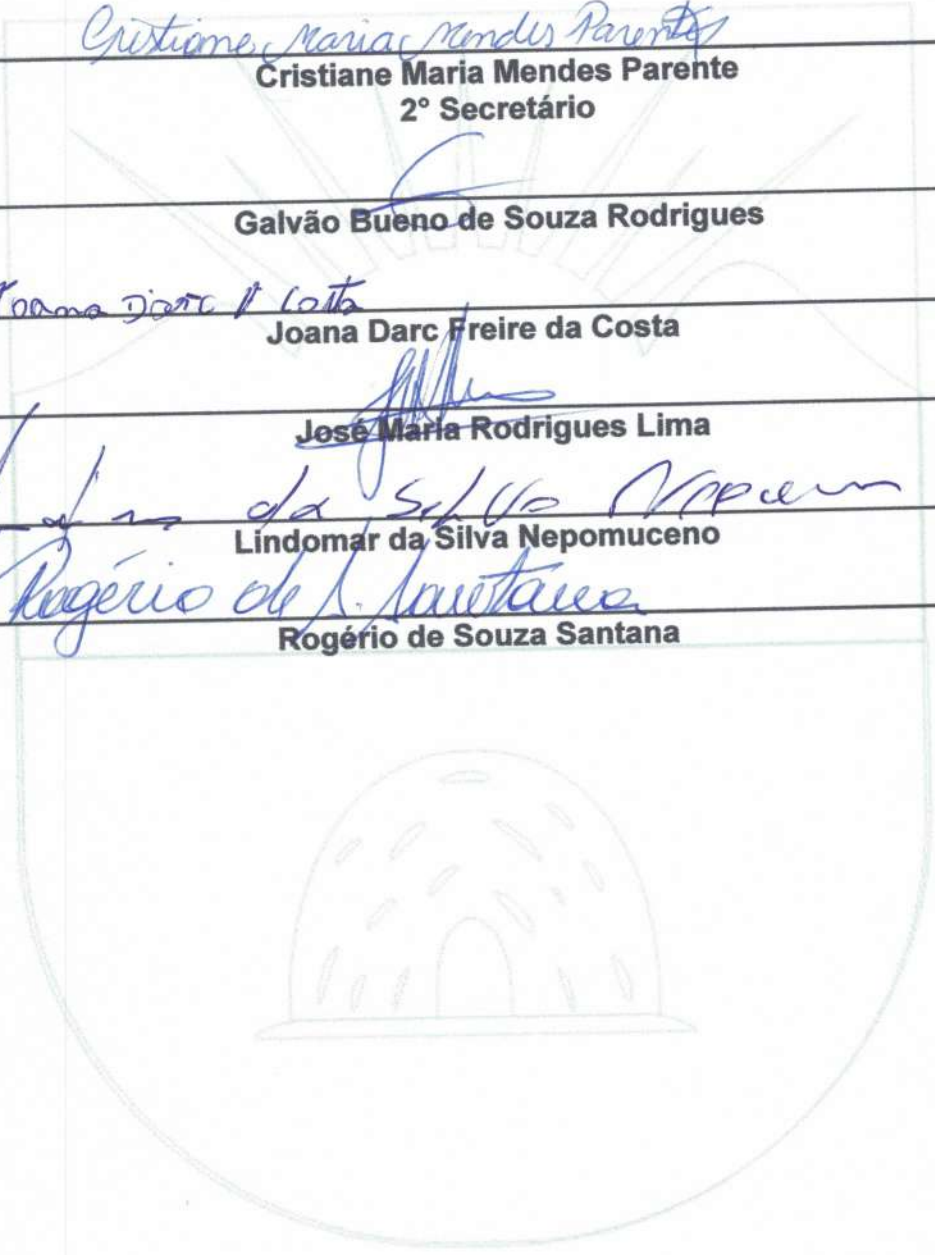 Cristiane Maria Mendes Parente
Cristiane Maria Mendes Parente
2° Secretário
Galvão Bueno de Souza Rodrigues
Joana Darc F Costa
Joana Darc Freire da Costa
José Maria Rodrigues Lima
da Silva
Lindomar da Silva Nepomuceno
Rogério de S. Santana
Rogério de Souza Santana